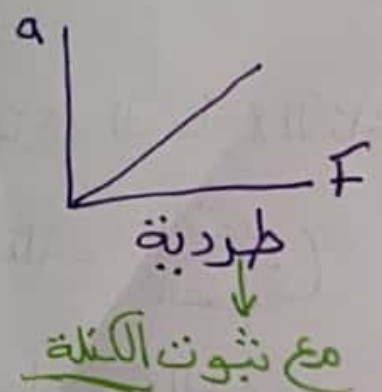 a
F
طردية
مع ثبوت الكتلة